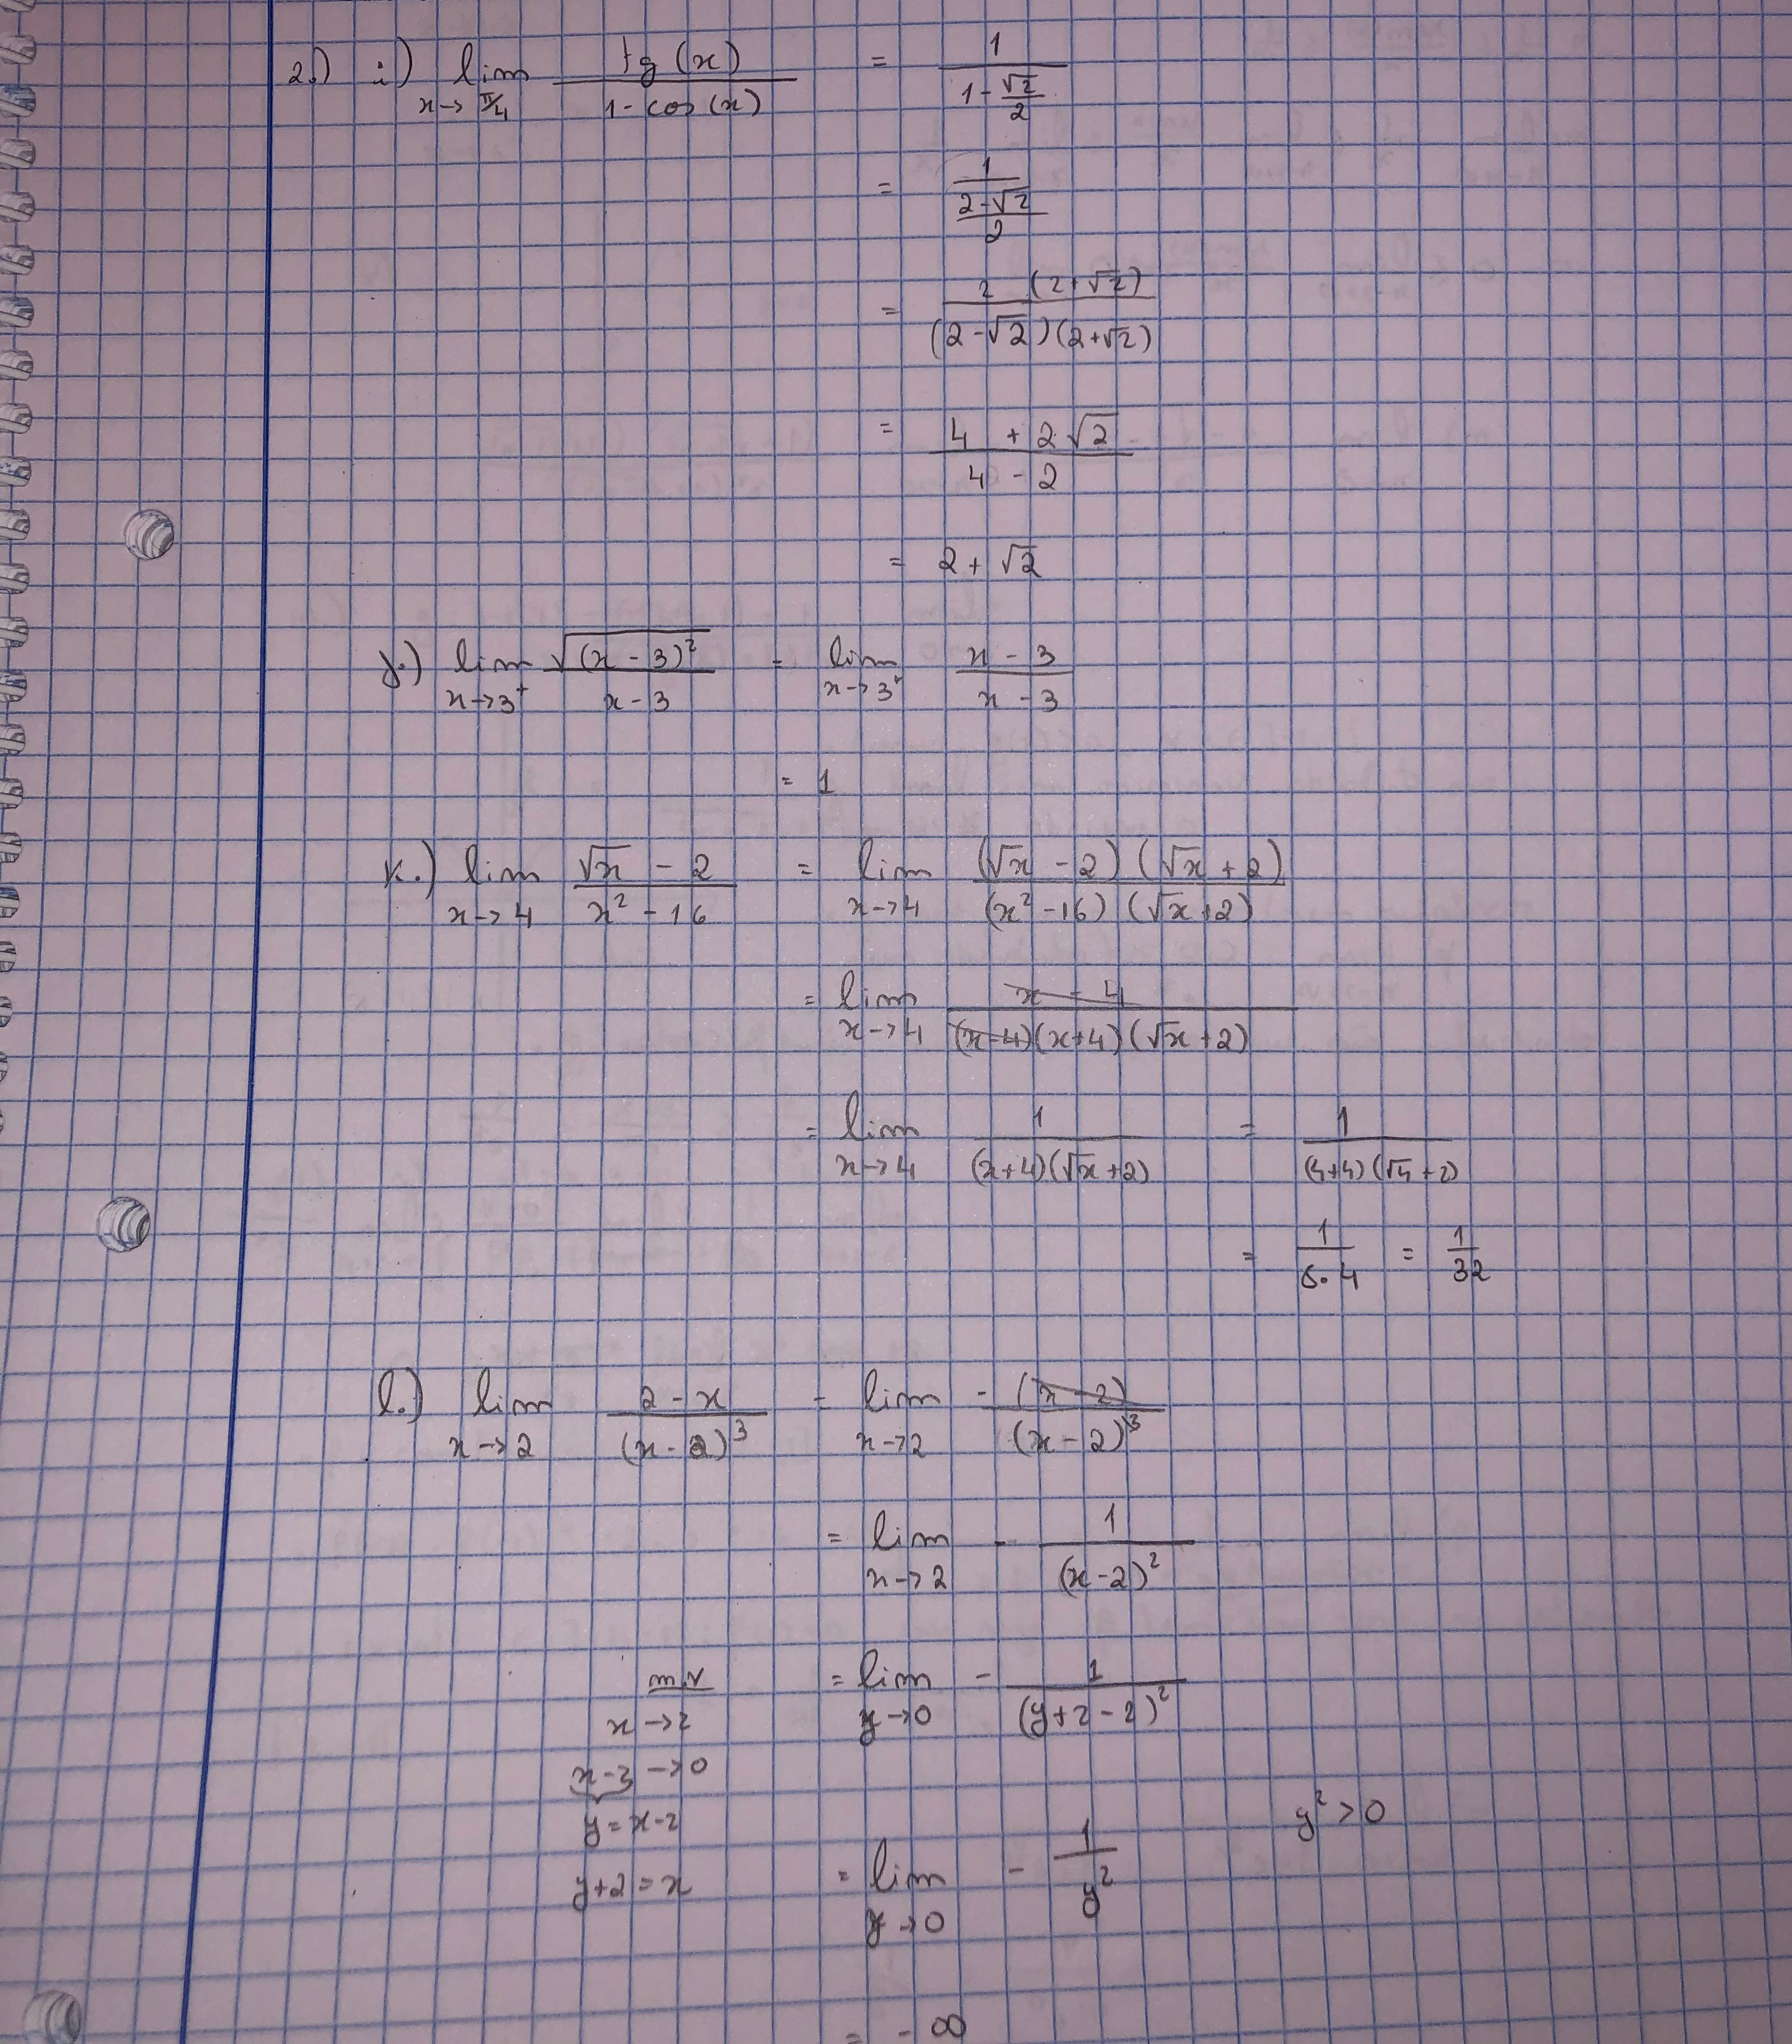 2.) i) lim x→π/4 tg(x) / (1 - cos(x)) = 1 / (1 - √2/2)
= 1 / ((2 - √2)/2)
= 2 (2+√2) / ((2-√2)(2+√2))
= (4 + 2√2) / (4 - 2)
= 2 + √2
j.) lim x→3⁺ √((x-3)²) / (x-3) = lim x→3⁺ (x-3) / (x-3)
= 1
k.) lim x→4 (√x - 2) / (x² - 16) = lim x→4 (√x - 2)(√x + 2) / ((x² - 16)(√x + 2))
= lim x→4 (x - 4) / ((x-4)(x+4)(√x+2))
= lim x→4 1 / ((x+4)(√x+2)) = 1 / ((4+4)(√4+2))
= 1 / (8·4) = 1/32
l.) lim x→2 (2-x) / (x-2)³ = lim x→2 - (x-2) / (x-2)³
= lim x→2 - 1 / (x-2)²
m.v = lim y→0 - 1 / (y+2-2)²
x→2
x-2 →0
y = x-2 y² > 0
y+2 = x = lim y→0 - 1/y²
= - ∞